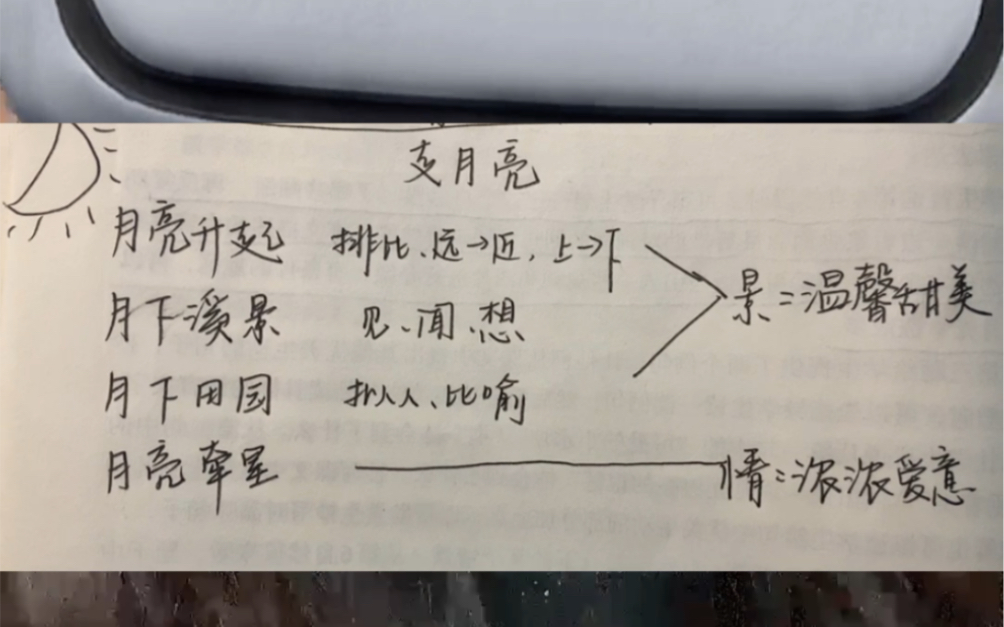 走月亮
月亮升起 排比、远→近，上→下
月下溪景 见、闻、想
景：温馨甜美
月下田园 拟人、比喻
月亮牵星 情：浓浓爱意